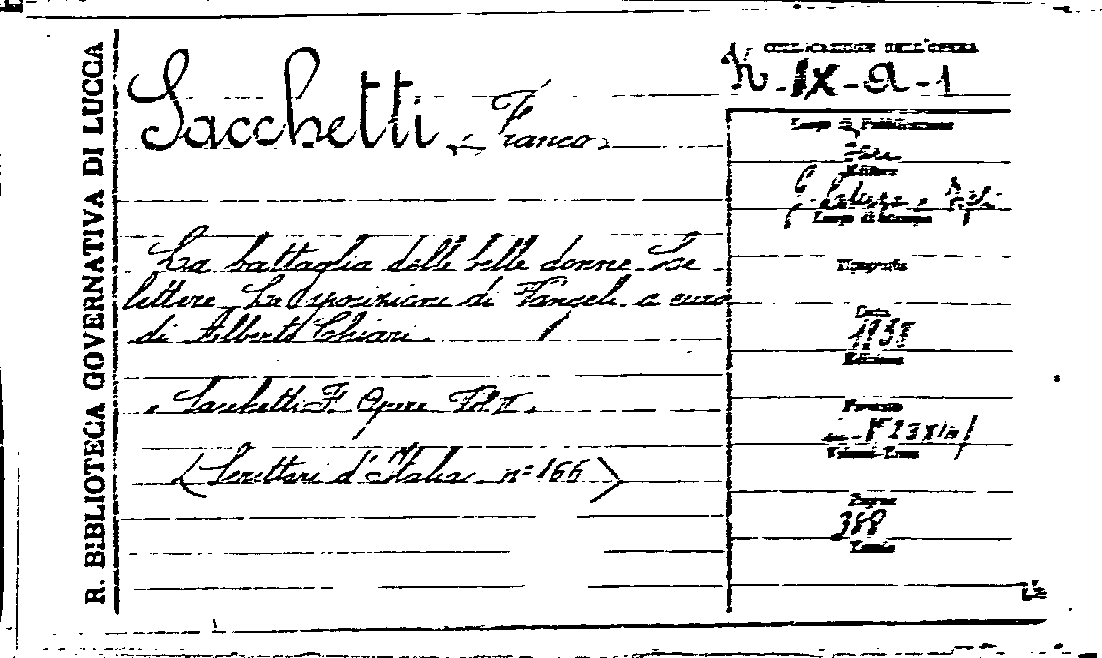 R. BIBLIOTECA GOVERNATIVA DI LUCCA
Sacchetti, Franco
La battaglia delle belle donne. Le
lettere. La sposizioni di Vangeli. a cura
di Alberto Chiari.
Sacchetti F. Opere Vol. II.
(Scrittori d'Italia. n° 166)
COLLOCAZIONE DELL'OPERA
K-IX-a-1
Luogo di Pubblicazione
Bari
Editore
G. Laterza e Figli
Luogo di Stampa
Tipografia
Data
1938
Edizione
Formato
Volumi-Tomo
Pagine
388
Tavole